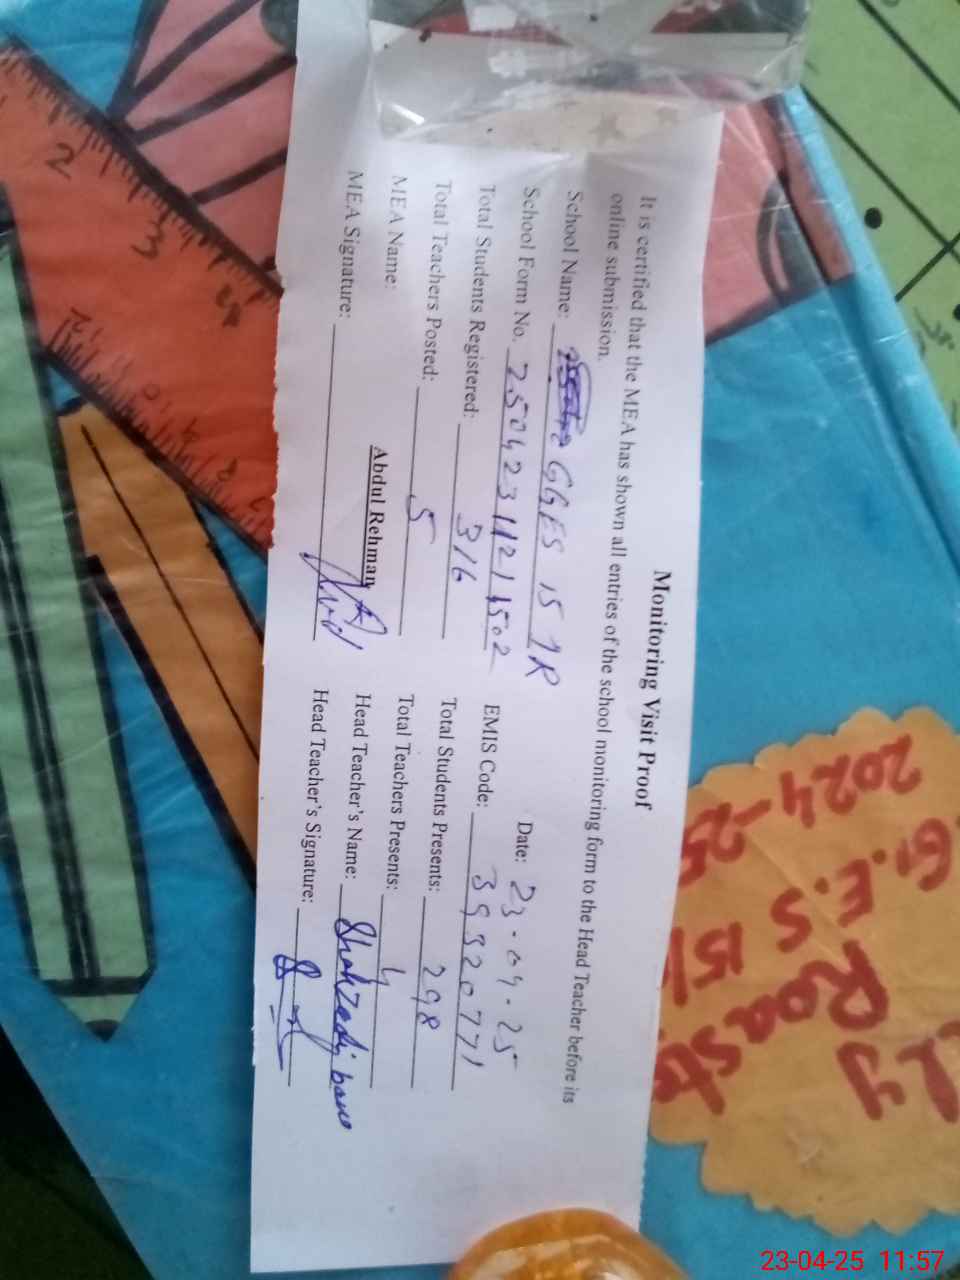 Monitoring Visit Proof
It is certified that the MEA has shown all entries of the school monitoring form to the Head Teacher before its
online submission.
Date: 23-04-25
School Name: GGES 15 1R
School Form No. 25042311211502 EMIS Code: 39320771
Total Students Registered: 316 Total Students Presents: 298
Total Teachers Posted: 5 Total Teachers Presents: 4
MEA Name: Abdul Rehman Head Teacher's Name: Shahzadi bano
MEA Signature: Head Teacher's Signature:
2024-25
G.E.S 15/
Roast
ly
2
3
4
12
23-04-25 11:57